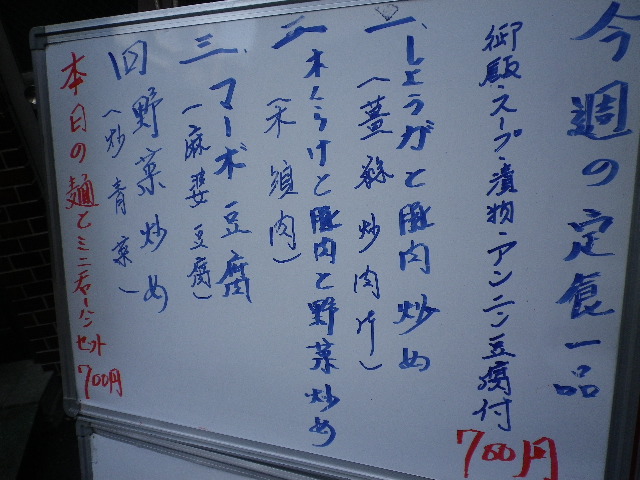 今週の定食一品
御飯・スープ・漬物・アンニン豆腐付
700円
一、しょうがと豚肉炒め
炒肉片）
二、木くらげと豚肉と野菜炒め
（木須肉）
三、マーボ豆腐
（麻婆豆腐）
四 野菜炒め
（炒青菜）
本日の麺とミニチャーハンセット
700円